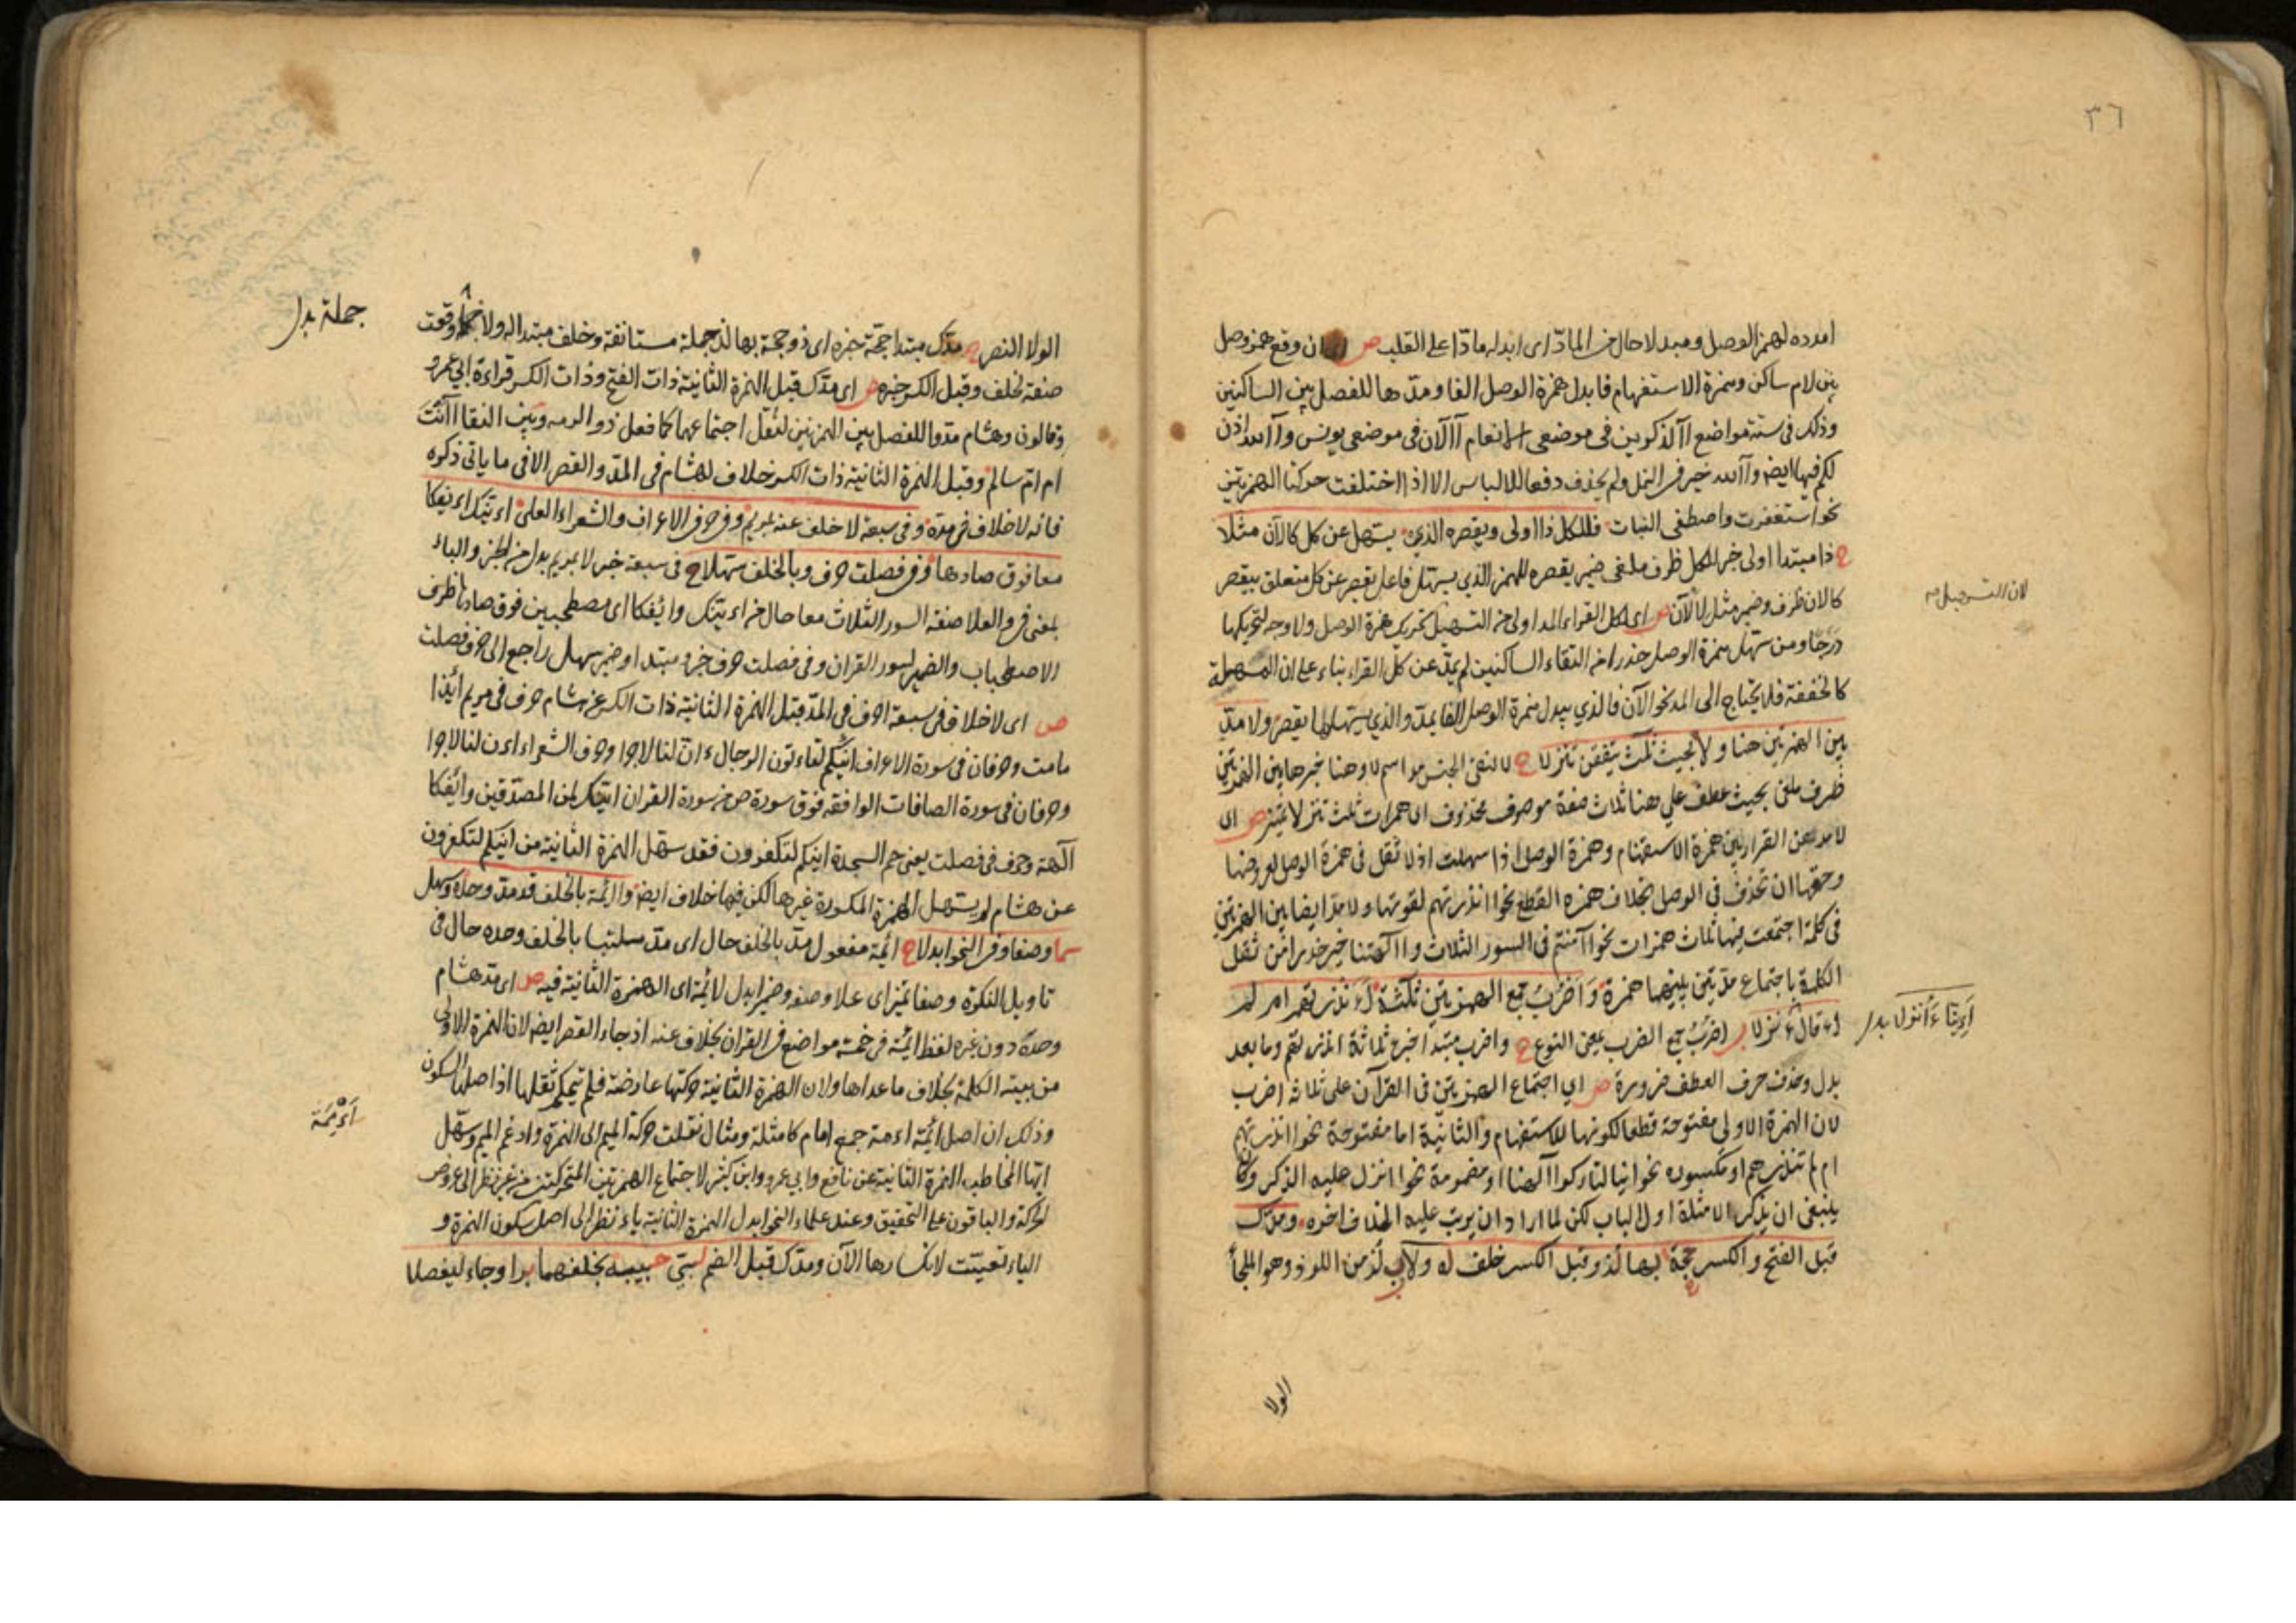 ٣٦
امدده لهمز الوصل ومبدلا حال من المادّ اى ابدله مادّا على القلب ص ان وقع همز وصل
بين لام ساكن وهمزة الاستفهام فابدل همزة الوصل الفا ومدّها للفصل بين الساكنين
وذلك فى ستة مواضع آآلذكرين فى موضعى الانعام آآلان فى موضعى يونس وآآلله اذن
لكم فيها ايض وآآلله خير فى النمل ولم يحذف دفعا للالباس الا اذا اختلفت حركتا الهمزتين
نحو استغفرت واصطفى البنات فللكل ذا اولى ويقصره الذى يسهل عن كل كالآن مثلا
ح ذا مبتدا اولى خبر للكل ظرف ملغى ضمير يقصره للهمز الذي يسهل فاعل يقصر عن كل متعلق بيقصر
كالان ظرف وضمير مثل لالآن ص اى لكل القراء المد اولى من التسهيل همزة الوصل ولا وجه لتحريكها
لان التسهيل
درجا ومن سهل همزة الوصل حذرا من التقاء الساكنين لم يمد عن كل القراء بناء على ان المسهلة
كالمخففة فلا يحتاج الى المد نحو الآن فالذي يبدل همزة الوصل الفا يمد والذي يسهلها يقصر ولا مدّ
بين الهمزتين هنا ولا بحيث ثلث يتفقن تنزلا ح لا لنفى الجنس مد اسم لا وهنا خبرها بين الهمزتين
ظرف ملغى بحيث عطف على هنا ثلاث صفة موصوف محذوف اى همزات ثلث تنزلا تميز ص اى
لا مد عن القرا بين همزة الاستفهام وهمزة الوصل اذا سهلت اذ لا ثقل فى همزة الوصل لعروضها
وحقها ان تحذف فى الوصل بخلاف همزه القطع نحو اانذرتهم لقوتها ولا مد ايضا بين الهمزتين
فى كلمة اجتمعت فيها ثلاث همزات نحو اآمنتم فى السور الثلاث واآلهتنا خير حذرا من ثقل
الكلمة باجتماع مدتين يليهما همزة وَاَضْرُبُ جمع الهمزتين ثلثة ءَاَنذرتهم ام لم
ءَاِنّا ءَاُنزل بدل
اضرب جمع الضرب بمعنى النوع ح واضرب مبتدا خبره ثلاثة اانذرتهم وما بعد
بدل وحذف حرف العطف ضرورة ص اي اجتماع الهمزتين فى القرآن على ثلاثه اضرب
لان الهمزة الاولى مفتوحة قطعا لكونها للاستفهام والثانية اما مفتوحة نحو اانذرتهم
ام لم تنذرهم او مكسوره نحو اينا لتاركوا آلهتنا او مضمومة نحو اانزل عليه الذكر وكا
ينبغى ان يذكر الامثلة اول الباب لكن لما اراد ان يرتب عليه الخلاف اخره ومدّك
قبل الفتح والكسر حجة بها لذ وقبل الكسر خلف له ولا لُذ من اللوذ وهو الملجأ
الولا
الولا النصر ح مدّك مبتدا حجّة خبره اى ذو حجة بها لذ جملة مستانفة وخلف مبتدا له ولا خبر وقعت
جملة بدل
صفة لخلف وقبل الكسر خبره ص اى مدّك قبل الهمزة الثانية ذات الفتح وذات الكسر قراءة ابى عمرو
وقالون وهشام مدوا للفصل بين الهمزتين لثقل اجتماعهما كما فعل ذو الرمه وبين النقا اآنت
ام امّ سالم وقبل الهمزة الثانية ذات الكسر خلاف لهشام فى المدّ والقصر الا فى ما ياتى ذكره
فانه لا خلاف فى مده وفى سبعة لا خلف عنه بمريم وفى حرفى الاعراف والشعراء العلى اءنك اءفكا
معا فوق صادها وفى فصلت حرف وبالخلف سهلا ح فى سبعة خبر لا بمريم بدل من الخبر والباء
بمعنى فى والعلا صفة السور الثلاث معا حال من اءنك وائفكا اى مصطحبين فوق صادها ظرف
الاصطحاب والضمير لسور القران وفى فصلت حرف خبر ومبتدا وضمير سهل راجع الى حرف فصلت
ص اى لا خلاف فى سبعة احرف فى المدّ قبل الهمزة الثانية ذات الكسر عن هشام حرف فى مريم ائذا
ما مت وحرفان فى سورة الاعراف ائنكم لتاءتون الرجال ءانّ لنا لاجرا وحرف الشعراء اءن لنا لاجرا
وحرفان فى سورة الصافات الواقعه فوق سورة ص من سورة القران ائنك لمن المصدّقين وائفكا
آلهة وحرف فى فصلت يعنى حم السجدة ائنكم لتكفرون فقد سهل الهمزة الثانية من ائنكم لتكفرون
عن هشام لم يسهل الهمزة المكسورة غيرها لكن فيها خلاف ايض وائمة بالخلف قد مدّ وحده وسهل
سما وصفا وفى النحو ابدلا ح ائمة مفعول مدّ بالخلف حال اى مدّ ملتبسا بالخلف وحده حال فى
تاويل النكرة وصفا تميز اى علا وصفه وضمير ابدل لائمة اى الهمزة الثانية فيه ص اى مدّ هشام
وحده دون غيره لفظ ائمة فى خمسة مواضع فى القران بخلاف عنه اذ جاء القصر ايض لان الهمزة الاولى
من بنية الكلمة بخلاف ما عداها ولان الهمزة الثانية حركتها عارضة فلم يتمكن ثقلها اذ اصلها السكون
اَءْمِمَة
وذلك ان اصل ائمة اءممة جمع امام كامثلة ومثال نقلت حركة الميم الى الهمزة وادغم الميم وسهّل
ايّها المخاطب الهمزة الثانية عن نافع وابى عمرو وابن كثير لاجتماع الهمزتين المتحركتين من غير نظر الى عروض
الحركة والباقون على التحقيق وعند علماء النحو ابدل الهمزة الثانية ياء نظر الى اصل سكون الهمزة و
الياء تعينت لانكسارها الآن ومدك قبل الضم لبّى حبيبه بخلفهما برا وجاء ليفصلا